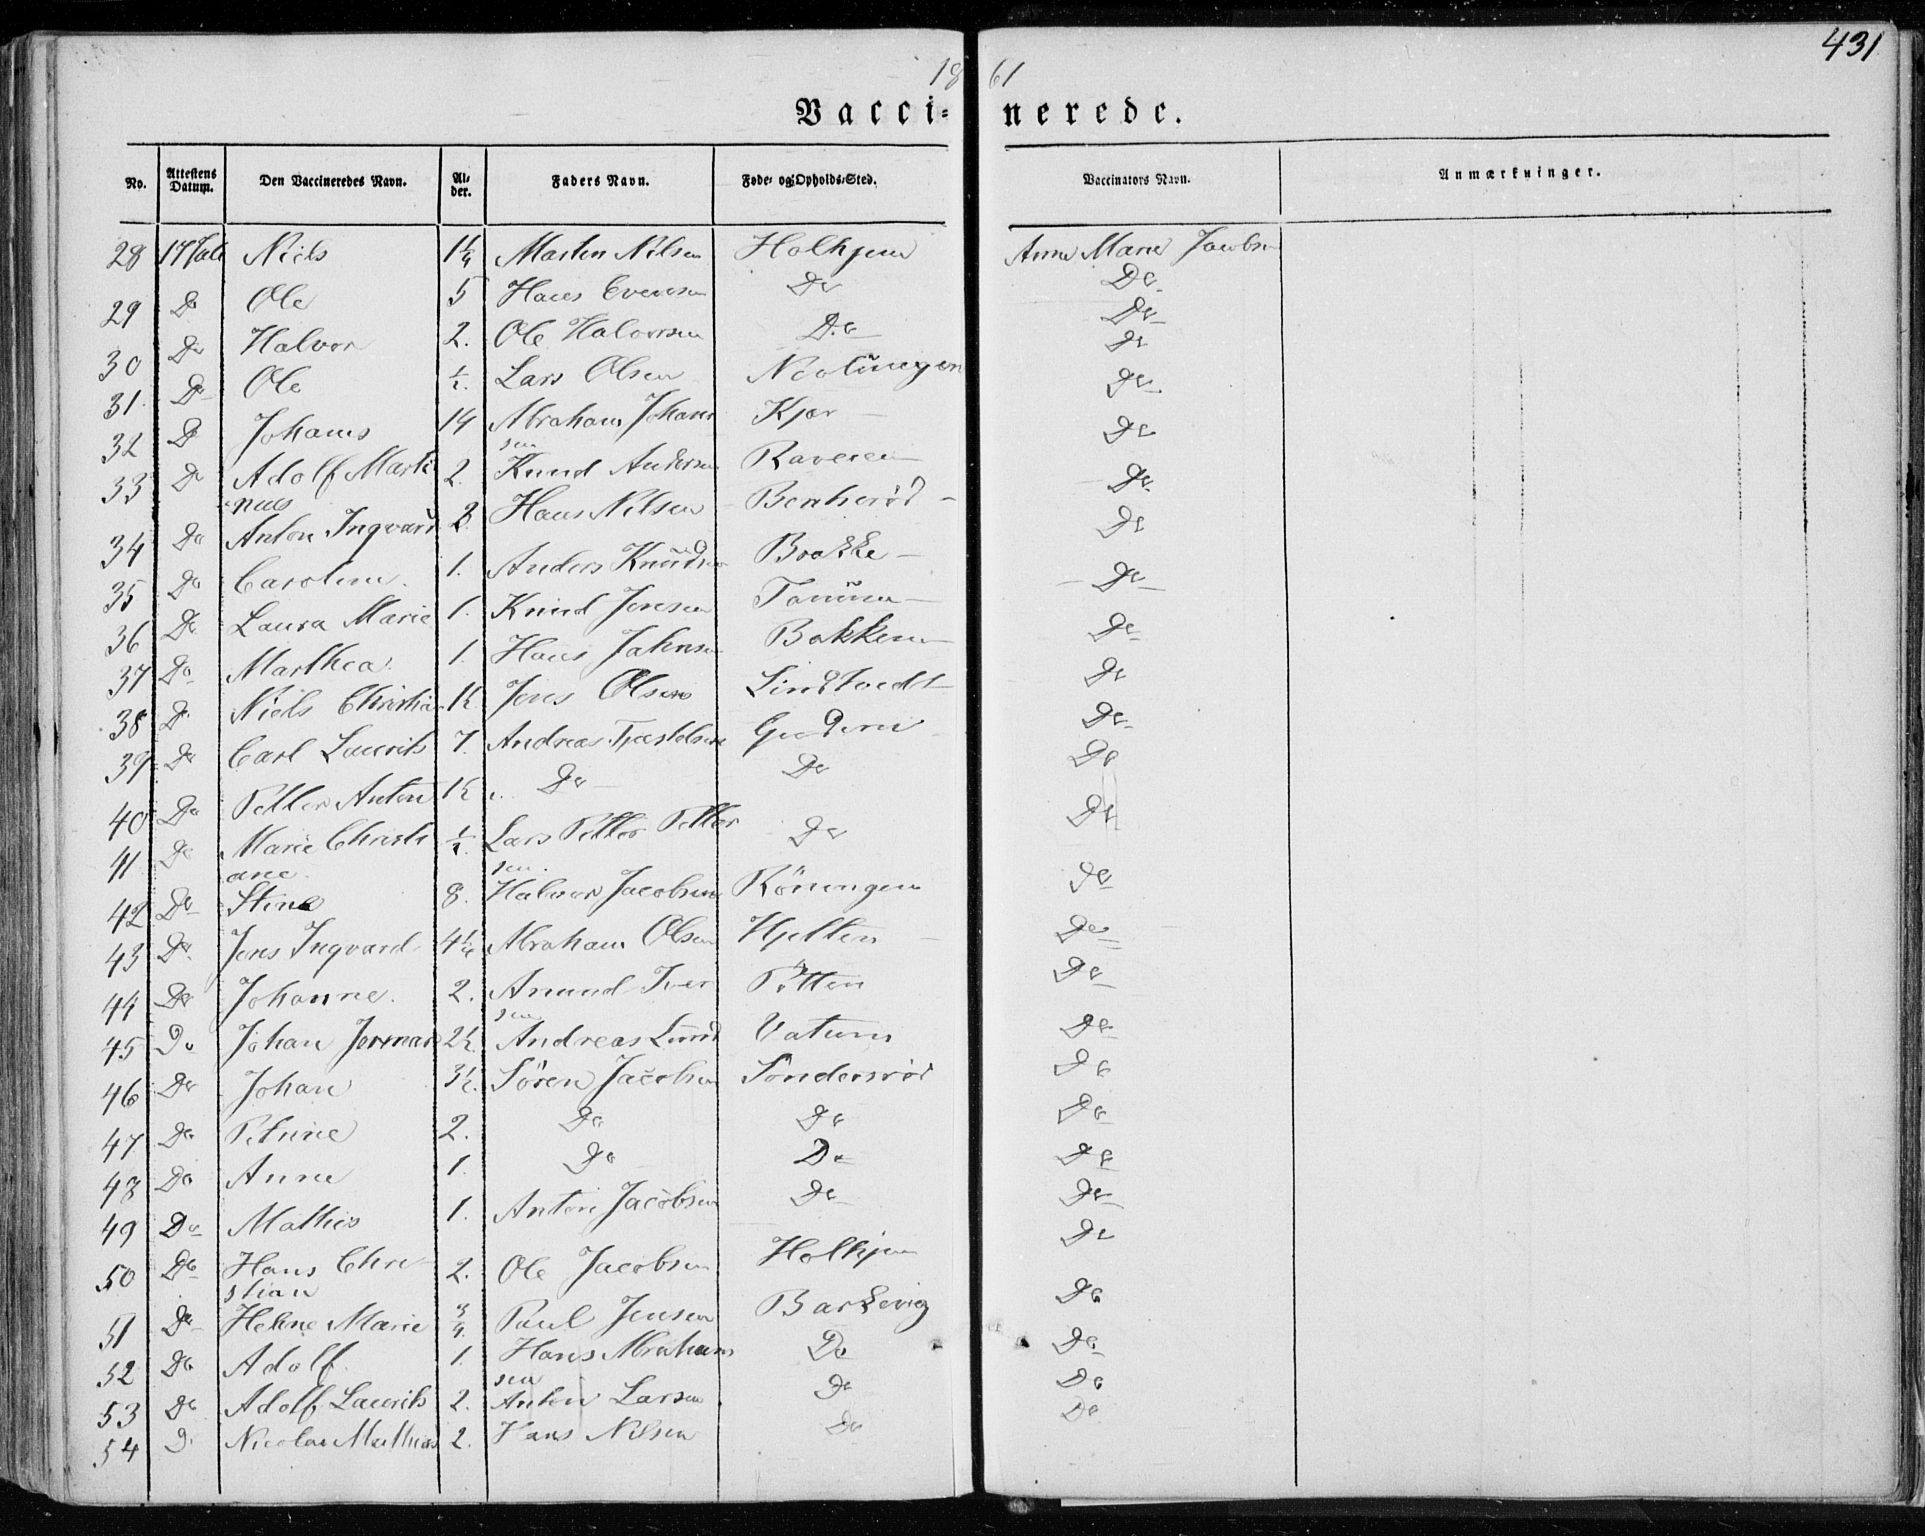 431
18 61
Vacci- nerede.
No. Attestens Datum. Den Vaccineredes Navn. Al- der. Faders Navn. Føde- og Opholds-Sted. Vaccinators Navn. Anmærkninger.
28 17 Juli Niels 1 1/4 Marten Nilsen Holkjem Anne Marie Jacobsen
29 Do Ole 5 Hans Evensen Do Do
30 Do Halvor 2. Ole Halvorsen Do Do
31. Do Ole 1/2. Lars Olsen Do
32 Do Johans 14 Abraham Johan Kjær Do
sen
33 Do Adolf Marti 2. Knud Andersen Raveien Do
nus
34 Do Anton Ingvard 2 Hans Nilsen Do
35 Do Caroline 1. Anders Knudsen Brække Do
36 Do Laura Marie 1. Knud Jensen Do
37 Do Marthea 1. Hans Bakken Do
38 Do Niels Christia 1/2 Jens Olsen Lindtvedt Do
39 Do Carl Laurits 7. Andreas Gudem Do
40 Do Petter Anton 1/2 Do Do Do
41 Do Marie Christi 1/2. Lars Petter Petter Do Do
ane sen.
42 Do Stine 8. Halvor Jacobsen Röningen Do
43 Do Jens Ingvard 4 1/2 Abraham Olsen Hjelten Do
44 Do Johanne. 2. Amund Iver Do
sen
45 Do Johan 2 1/2. Andreas Lund Vatum Do
46 Do Johan 3 1/2. Sören Jacobsen Söndersröd Do
47 Do Petrine 2. Do Do Do
48 Do Anne 1. Do Do Do
49 Do Mathis 1. Anton Jacobsen Do Do
50 Do Hans Chri 2. Ole Jacobsen Holkjem Do
stian
51 Do Helene Marie 3/4. Paul Jensen Barkevig Do
52 Do Adolf 1. Hans Abraham Do Do
sen
53 Do Adolf Laurits 2. Anton Larsen Do Do
54 Do Nicolai Mathias 2. Hans Nilsen Do Do